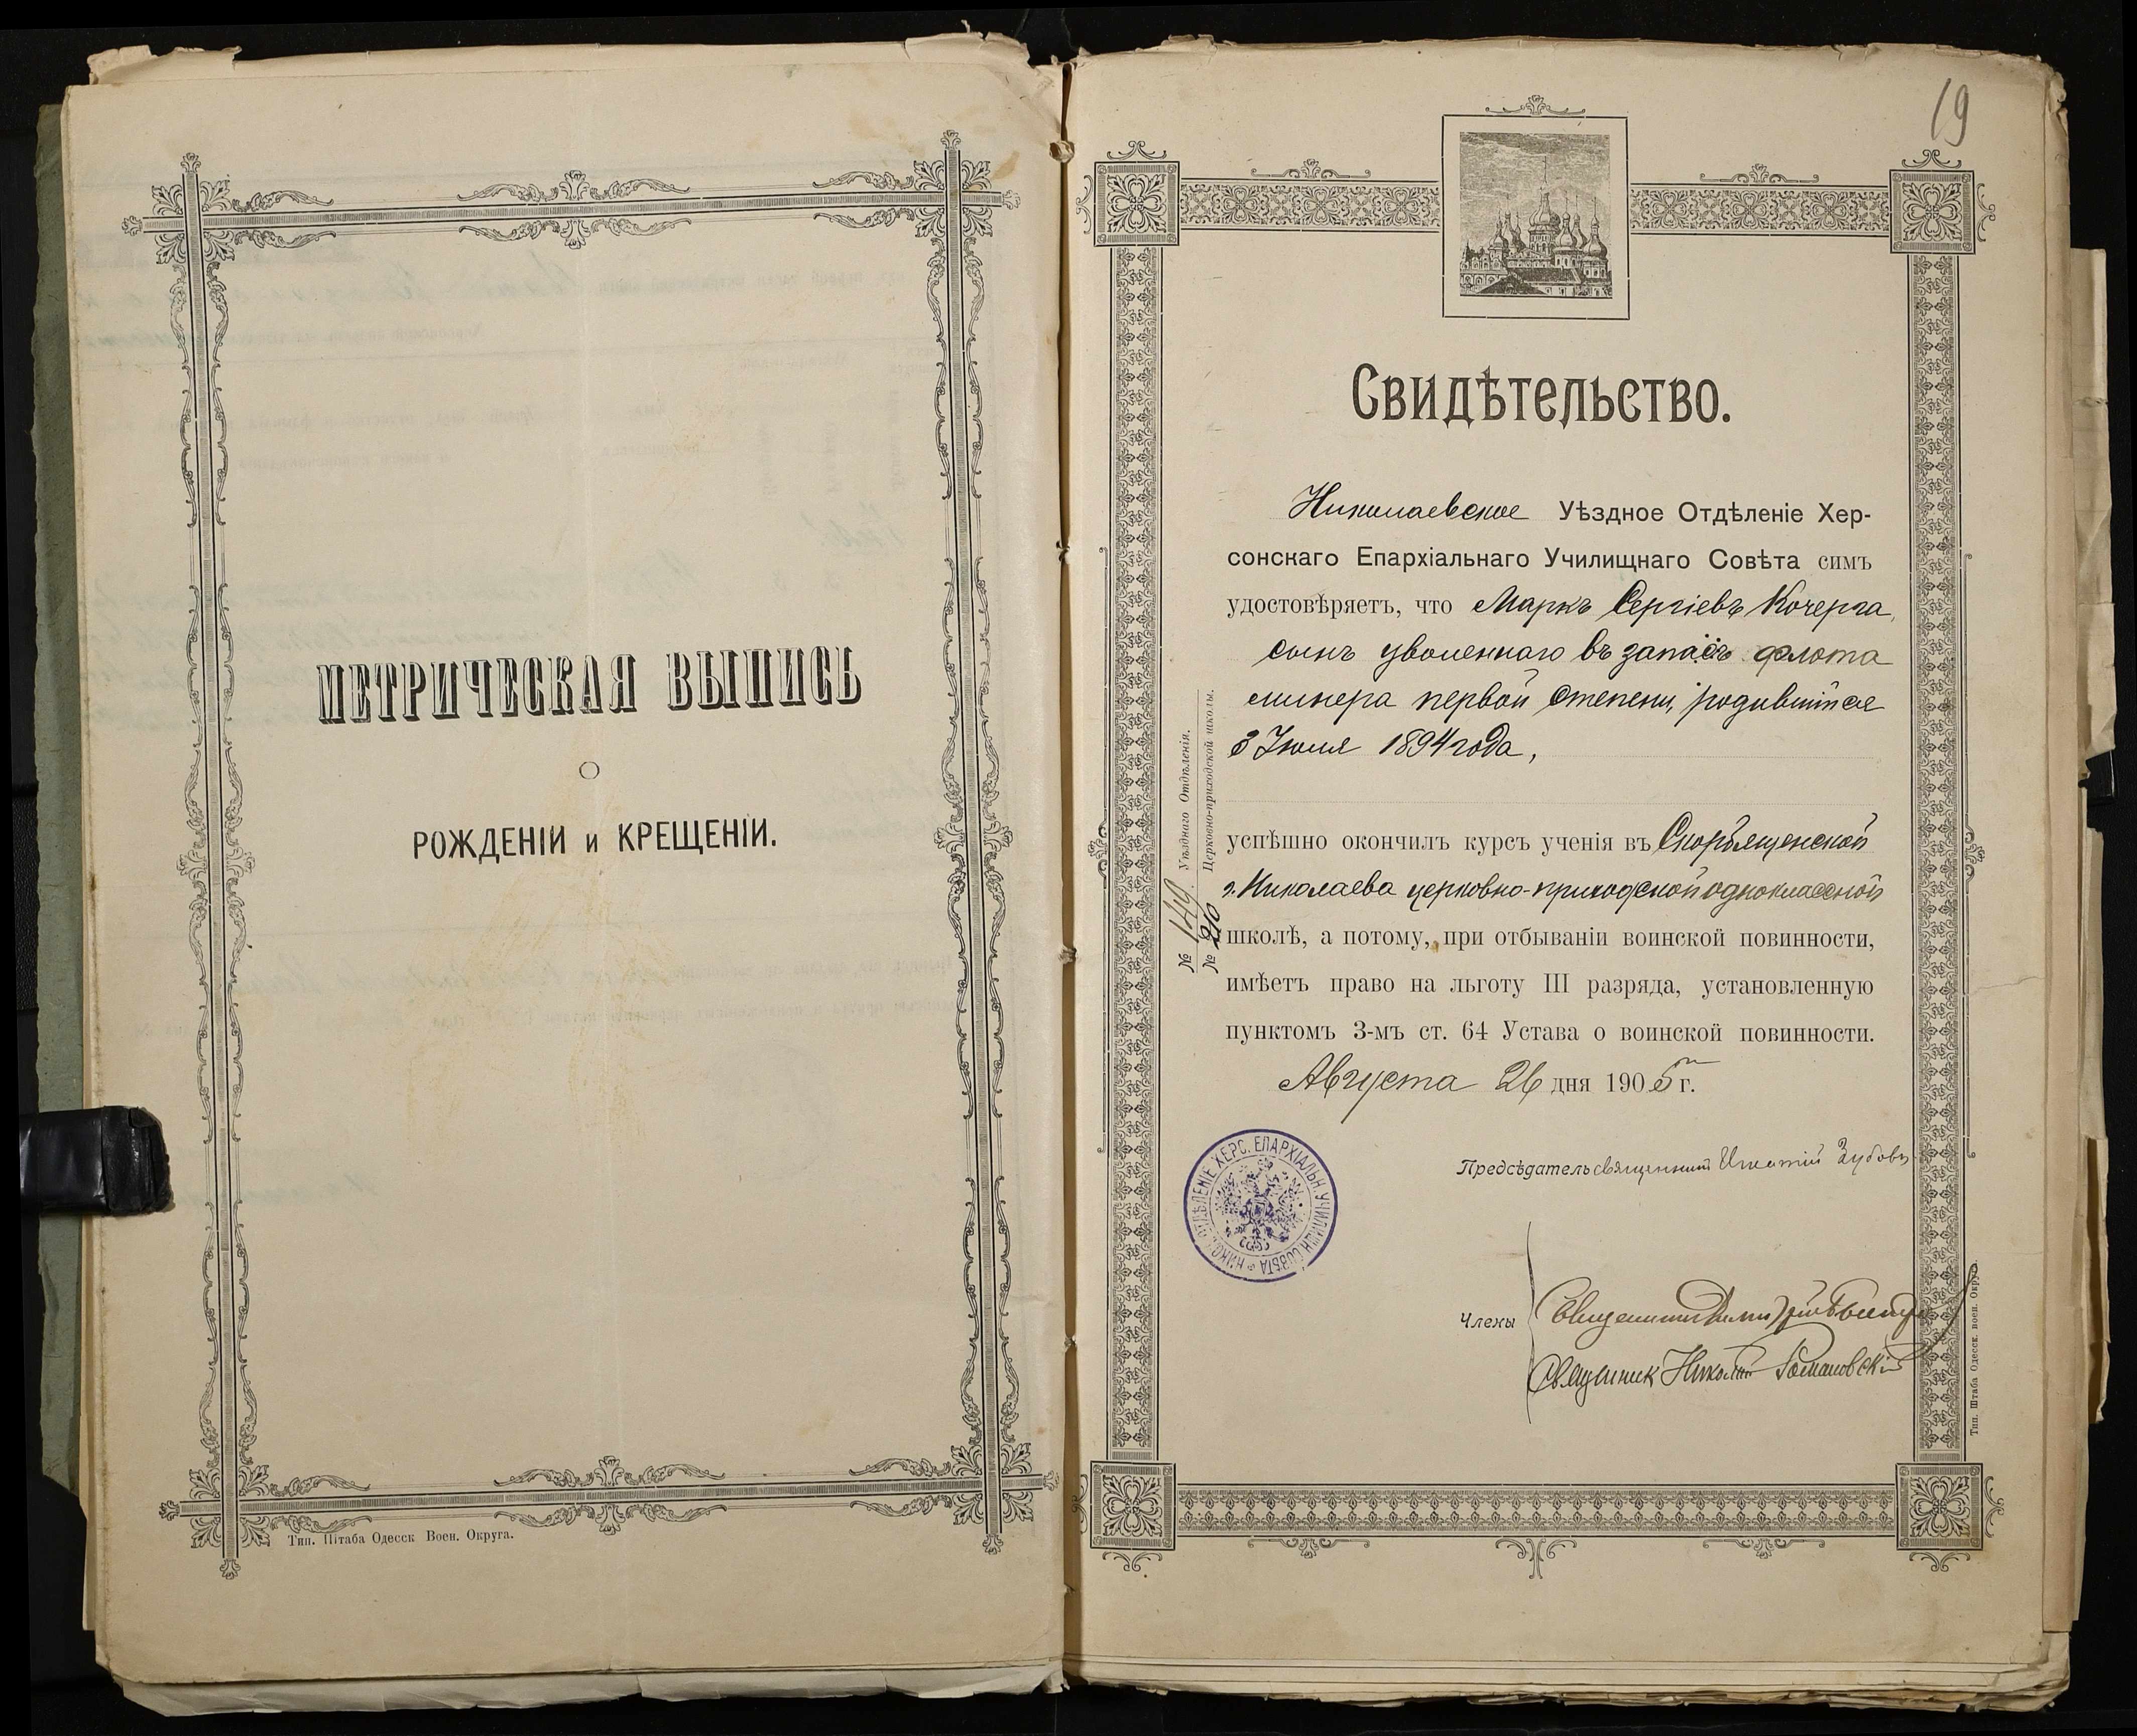 МЕТРИЧЕСКАЯ ВЫПИСЬ
О
РОЖДЕНІИ и КРЕЩЕНІИ.
Тип. Штаба Одесск Воен. Округа.
19
Свидѣтельство.
Николаевское Уѣздное Отдѣленіе Хер-
сонскаго Епархіальнаго Училищнаго Совѣта симъ
удостовѣряетъ, что Маркъ Сергіевъ Кочерга,
сынъ уволеннаго въ запасъ флота
минера первой степени, родившійся
3 Іюля 1894 года,
успѣшно окончилъ курсъ ученія въ Скорбященской
г. Николаева церковно-приходской одноклассной
школѣ, а потому, при отбываніи воинской повинности,
имѣетъ право на льготу III разряда, установленную
пунктомъ 3-мъ ст. 64 Устава о воинской повинности.
Августа 26 дня 1905 г.
№ 149. Уѣзднаго Отдѣленія.
№ 210 Церковно-приходской школы.
НИКОЛ. ОТДѢЛЕНІЕ ХЕРС. ЕПАРХІАЛЬН УЧИЛИЩН СОВѢТА
Предсѣдатель священникъ Игнатій Зубовъ
Члены
Священникъ
Священник Николай Романовскій
Тип. Штаба Одесск. воен. Округа.